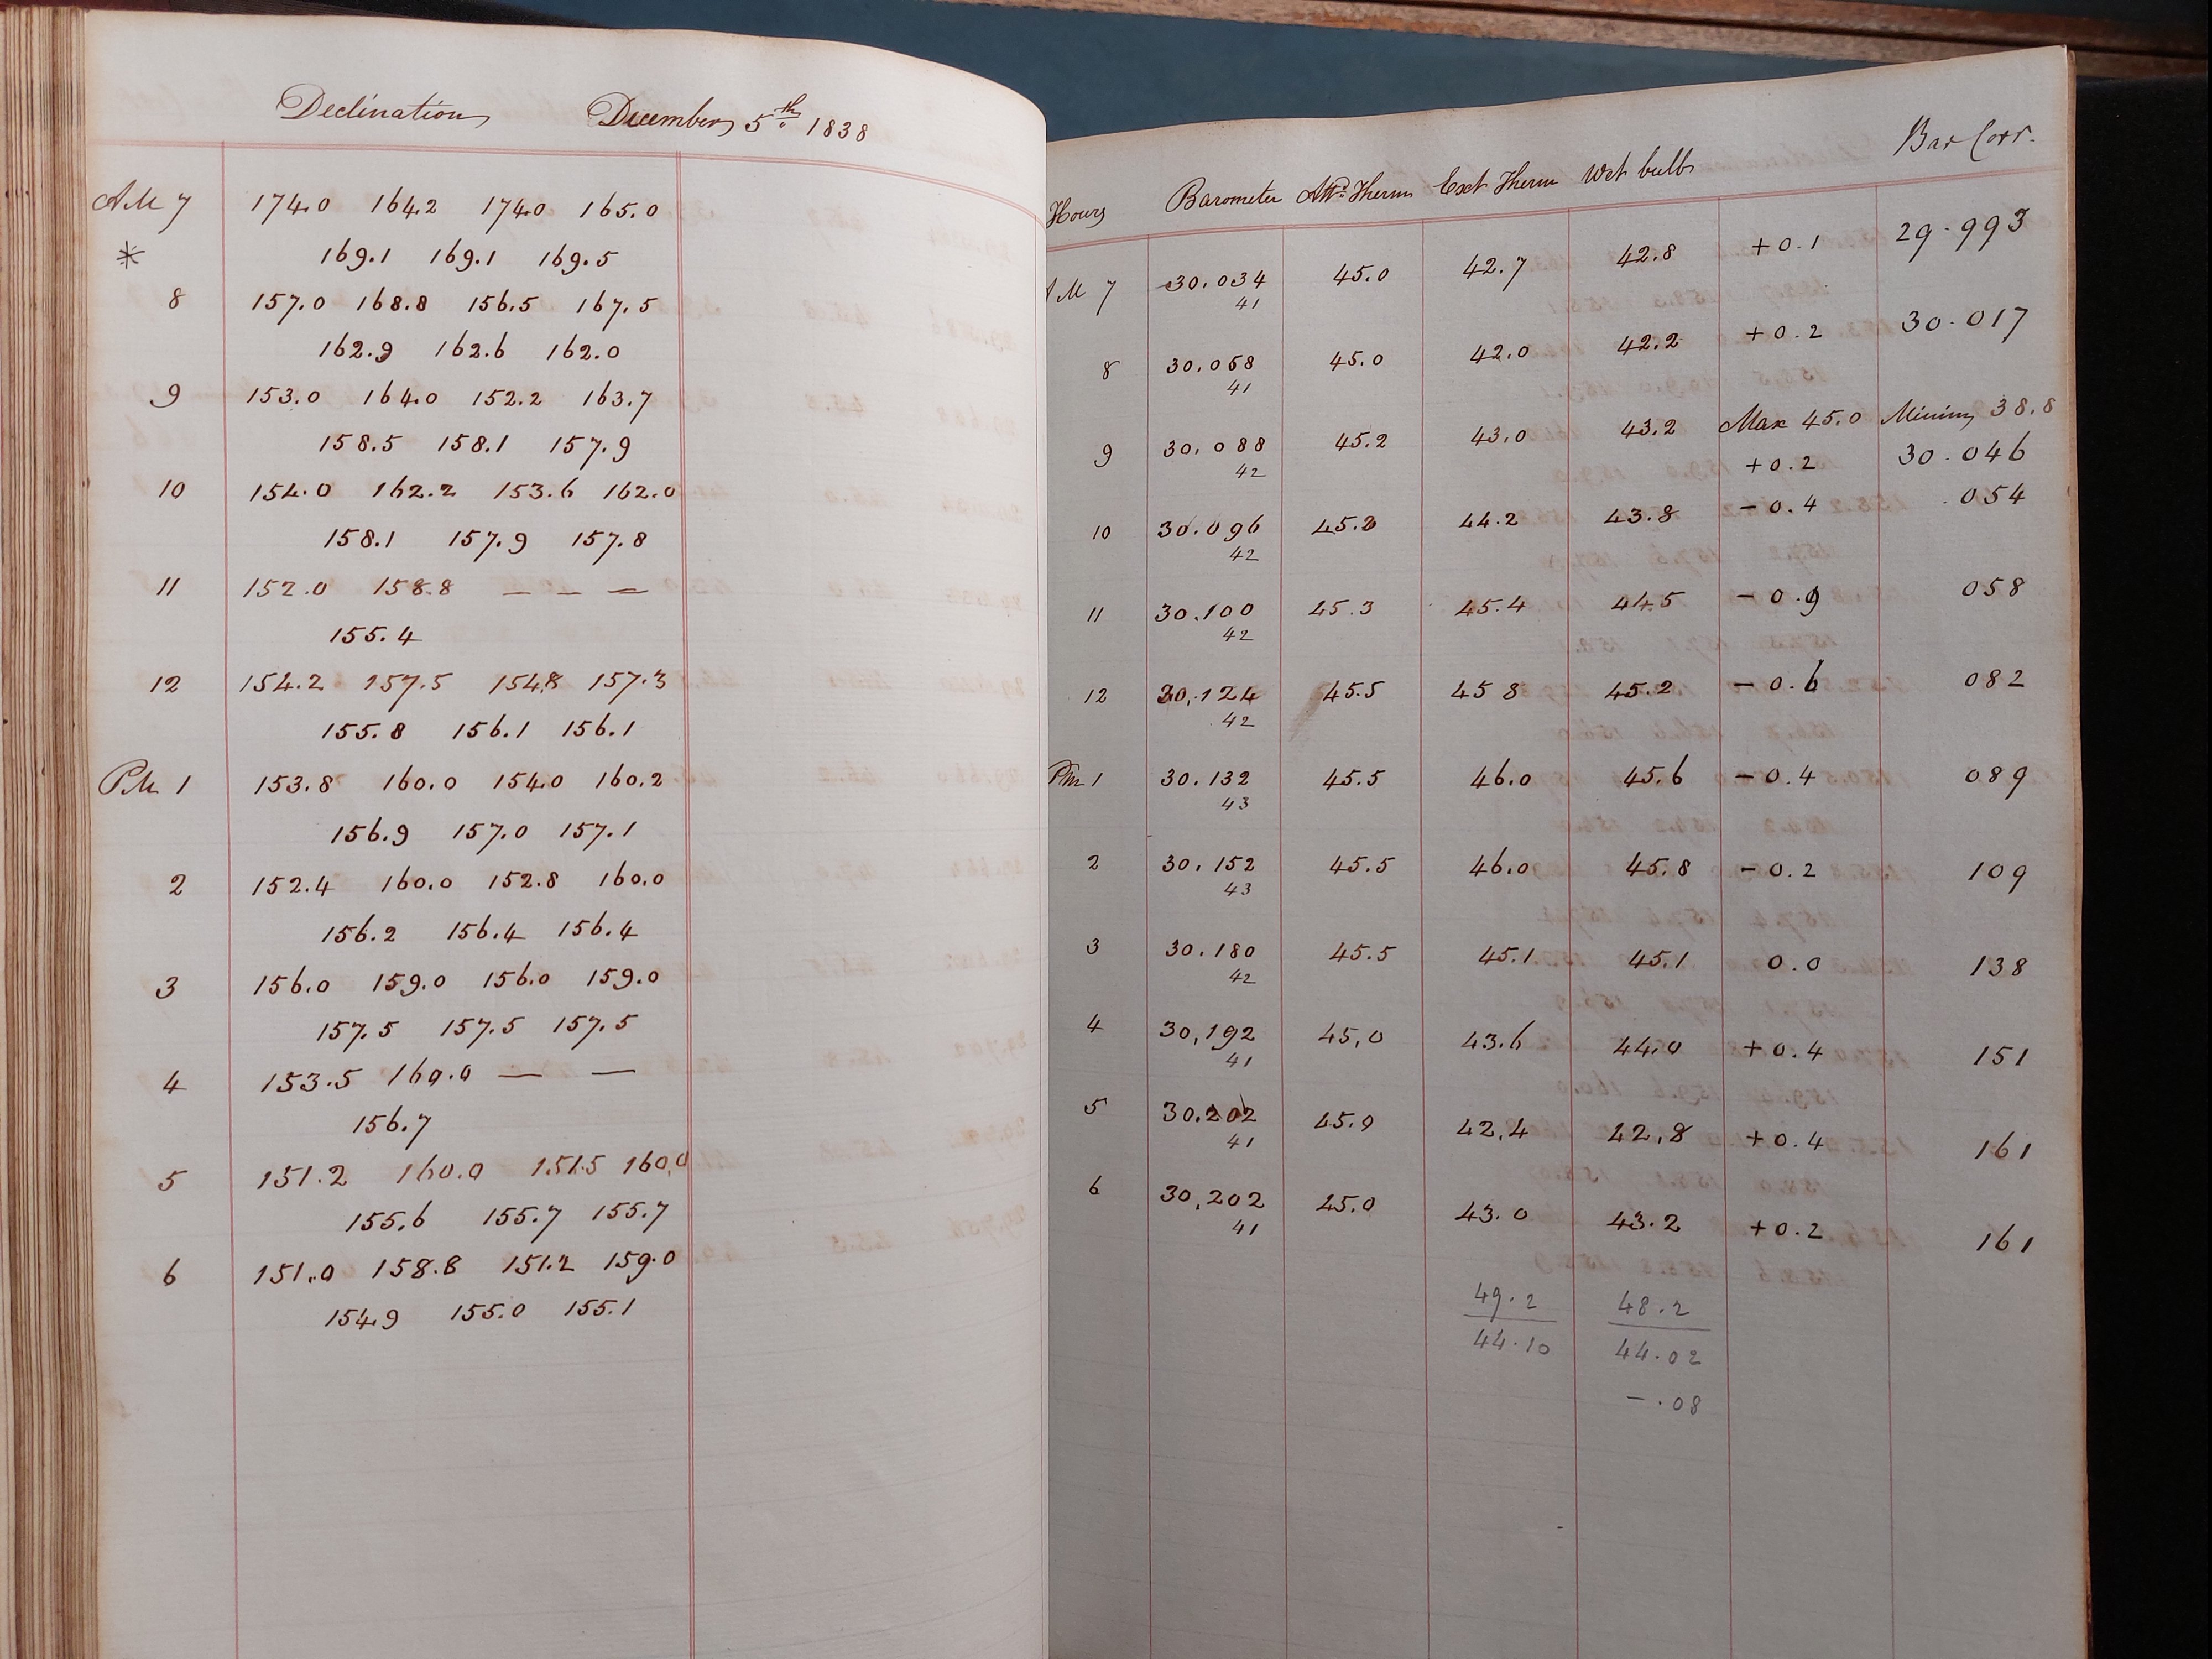 Declination December 5th 1838
AM 7 174.0 164.2 174.0 165.0
* 169.1 169.1 169.5
8 157.0 168.8 156.5 167.5
162.9 162.6 162.0
9 153.0 164.0 152.2 163.7
158.5 158.1 157.9
10 154.0 162.2 153.6 162.0
158.1 157.9 157.8
11 152.0 158.8 — — —
155.4
12 154.2 157.5 154.8 157.3
155.8 156.1 156.1
PM 1 153.8 160.0 154.0 160.2
156.9 157.0 157.1
2 152.4 160.0 152.8 160.0
156.2 156.4 156.4
3 156.0 159.0 156.0 159.0
157.5 157.5 157.5
4 153.5 160.0 — —
156.7
5 151.2 160.0 151.5 160.0
155.6 155.7 155.7
6 151.0 158.8 151.2 159.0
154.9 155.0 155.1
Hours Barometer Attd Therm Ext Therm Wet bulb Bar Corr.
AM 7 30.034 45.0 42.7 42.8 +0.1 29.993
41
8 30.058 45.0 42.0 42.2 +0.2 30.017
41
Max 45.0 Minim 38.8
9 30.088 45.2 43.0 43.2 +0.2 30.046
42
10 30.096 45.2 44.2 43.8 -0.4 .054
42
11 30.100 45.3 45.4 44.5 -0.9 058
42
12 30.124 45.5 45 8 45.2 -0.6 082
42
PM 1 30.132 45.5 46.0 45.6 -0.4 089
43
2 30.152 45.5 46.0 45.8 -0.2 109
43
3 30.180 45.5 45.1 45.1 0.0 138
42
4 30,192 45,0 43.6 44.0 +0.4 151
41
5 30.202 45.0 42,4 42,8 +0.4 161
41
6 30,202 45.0 43.0 43.2 +0.2 161
41
49.2 48.2
44.10 44.02
-.08